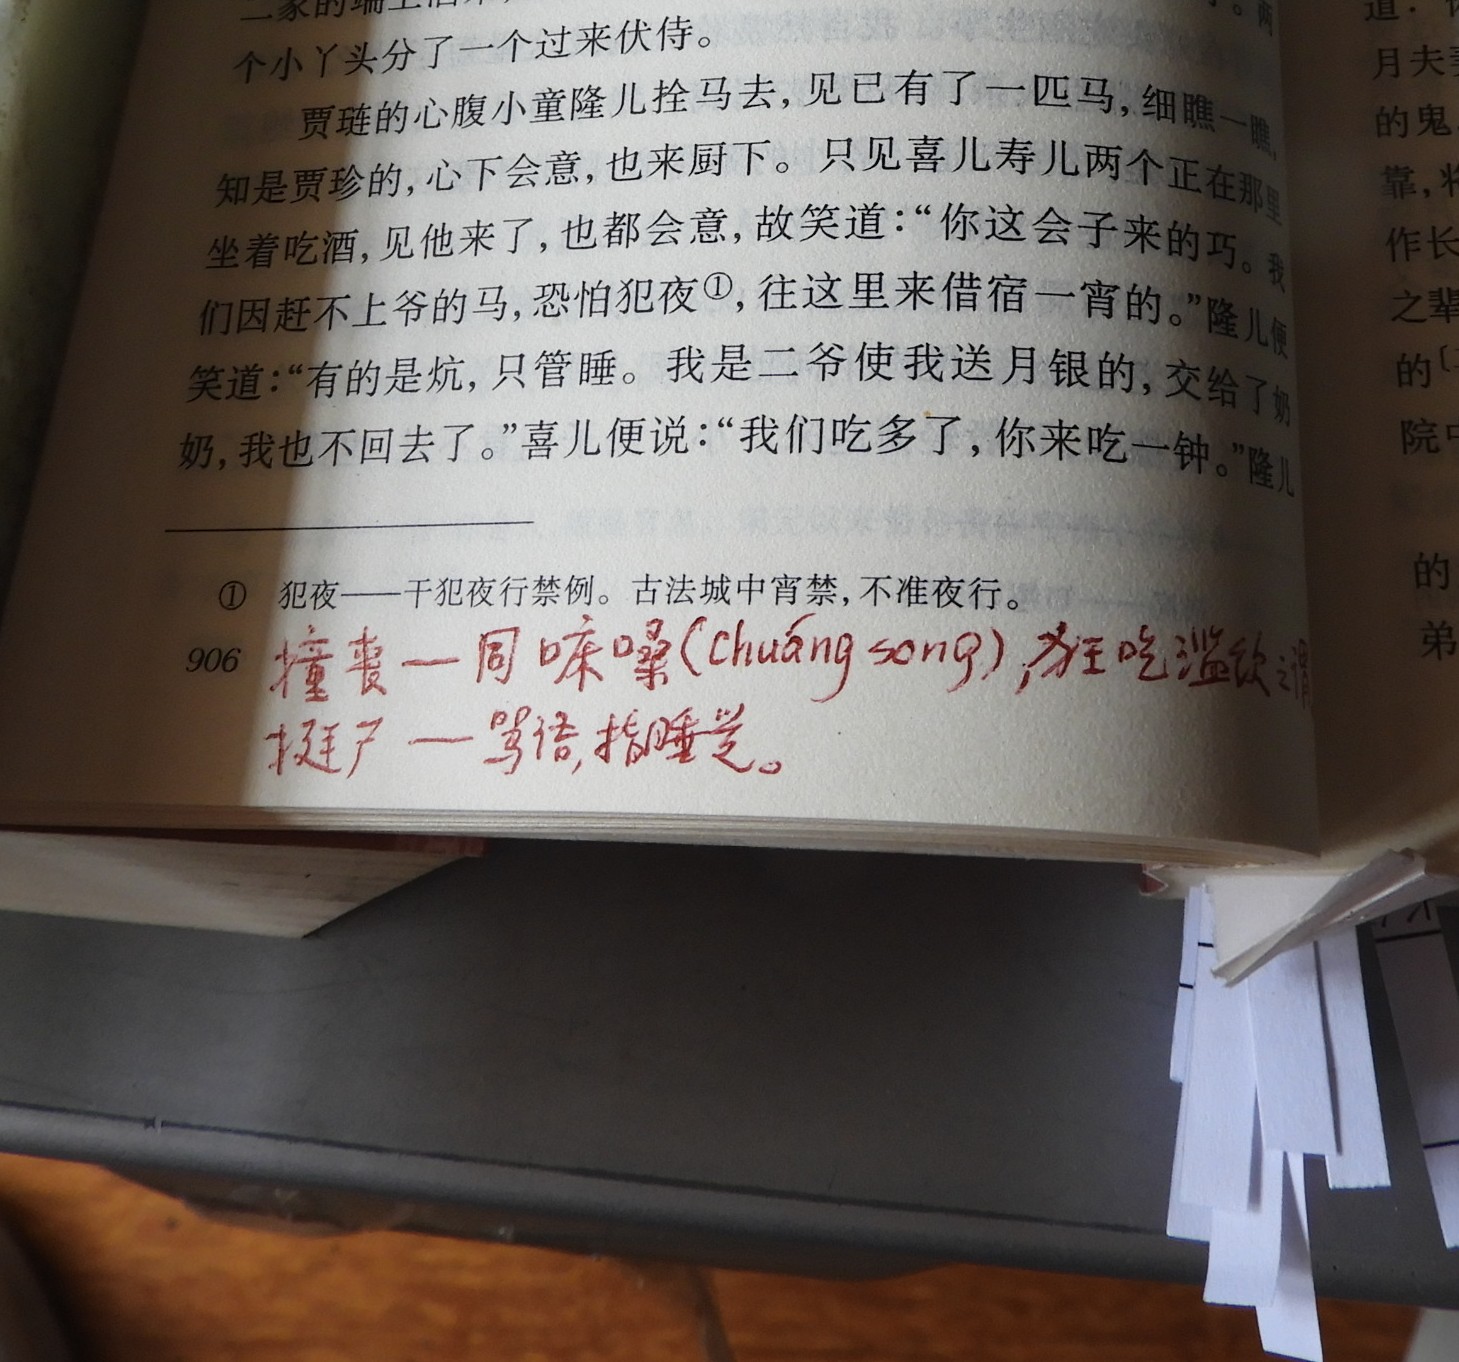 个小丫头分了一个过来伏侍。
贾琏的心腹小童隆儿拴马去，见已有了一匹马，细瞧一瞧，
知是贾珍的，心下会意，也来厨下。只见喜儿寿儿两个正在那里
坐着吃酒，见他来了，也都会意，故笑道：“你这会子来的巧。我
们因赶不上爷的马，恐怕犯夜①，往这里来借宿一宵的。”隆儿便
笑道：“有的是炕，只管睡。我是二爷使我送月银的，交给了奶
奶，我也不回去了。”喜儿便说：“我们吃多了，你来吃一钟。”隆儿
① 犯夜——干犯夜行禁例。古法城中宵禁，不准夜行。
906
撞丧—同㕩嗓(chuáng song)，狂吃滥饮之谓
挺尸—骂语，指睡觉。
道：
月夫
的鬼
靠，将
作长
之辈
的
院中
的
弟